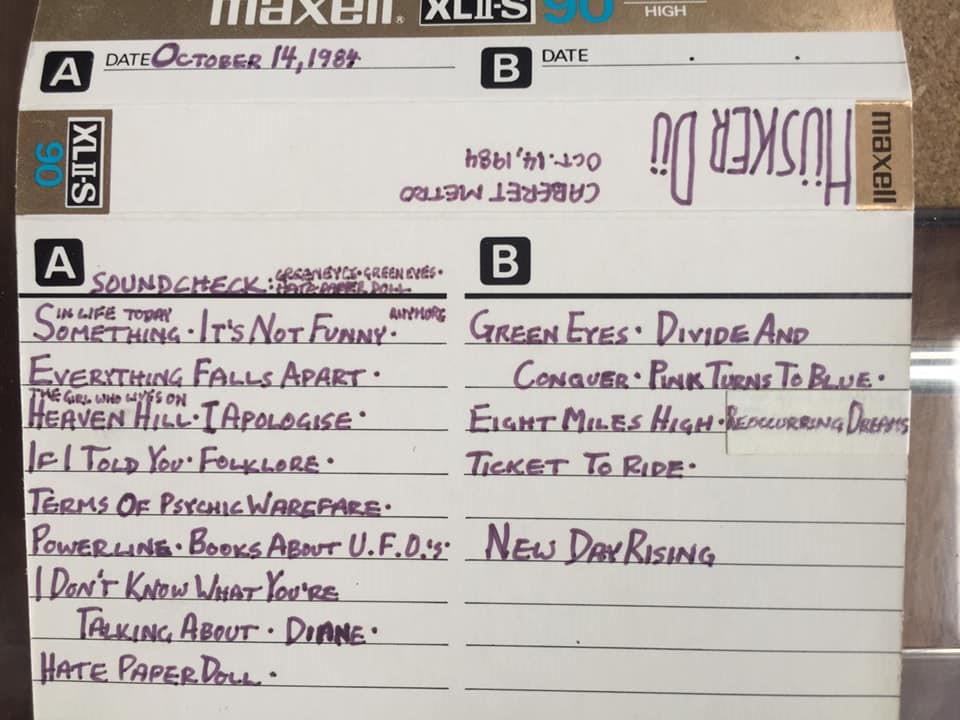 maxell. XLII-S 90
HIGH
A DATE OCTOBER 14, 1984
B DATE . .
XLII-S 90
HÜSKER DÜ
CABERET METRO
OCT. 14, 1984
maxell
A SOUNDCHECK: GREEN EYES · GREEN EYES ·
HATE PAPER DOLL
IN LIFE TODAY ANYMORE
SOMETHING · IT'S NOT FUNNY ·
EVERYTHING FALLS APART ·
THE GIRL WHO LIVES ON
HEAVEN HILL · I APOLOGISE ·
IF I TOLD YOU · FOLKLORE ·
TERMS OF PSYCHIC WAREFARE ·
POWERLINE · BOOKS ABOUT U.F.O.'S ·
I DON'T KNOW WHAT YOU'RE
TALKING ABOUT · DIANE ·
HATE PAPER DOLL ·
B
GREEN EYES · DIVIDE AND
CONQUER · PINK TURNS TO BLUE ·
EIGHT MILES HIGH · REOCCURRING DREAMS
TICKET TO RIDE ·
NEW DAY RISING